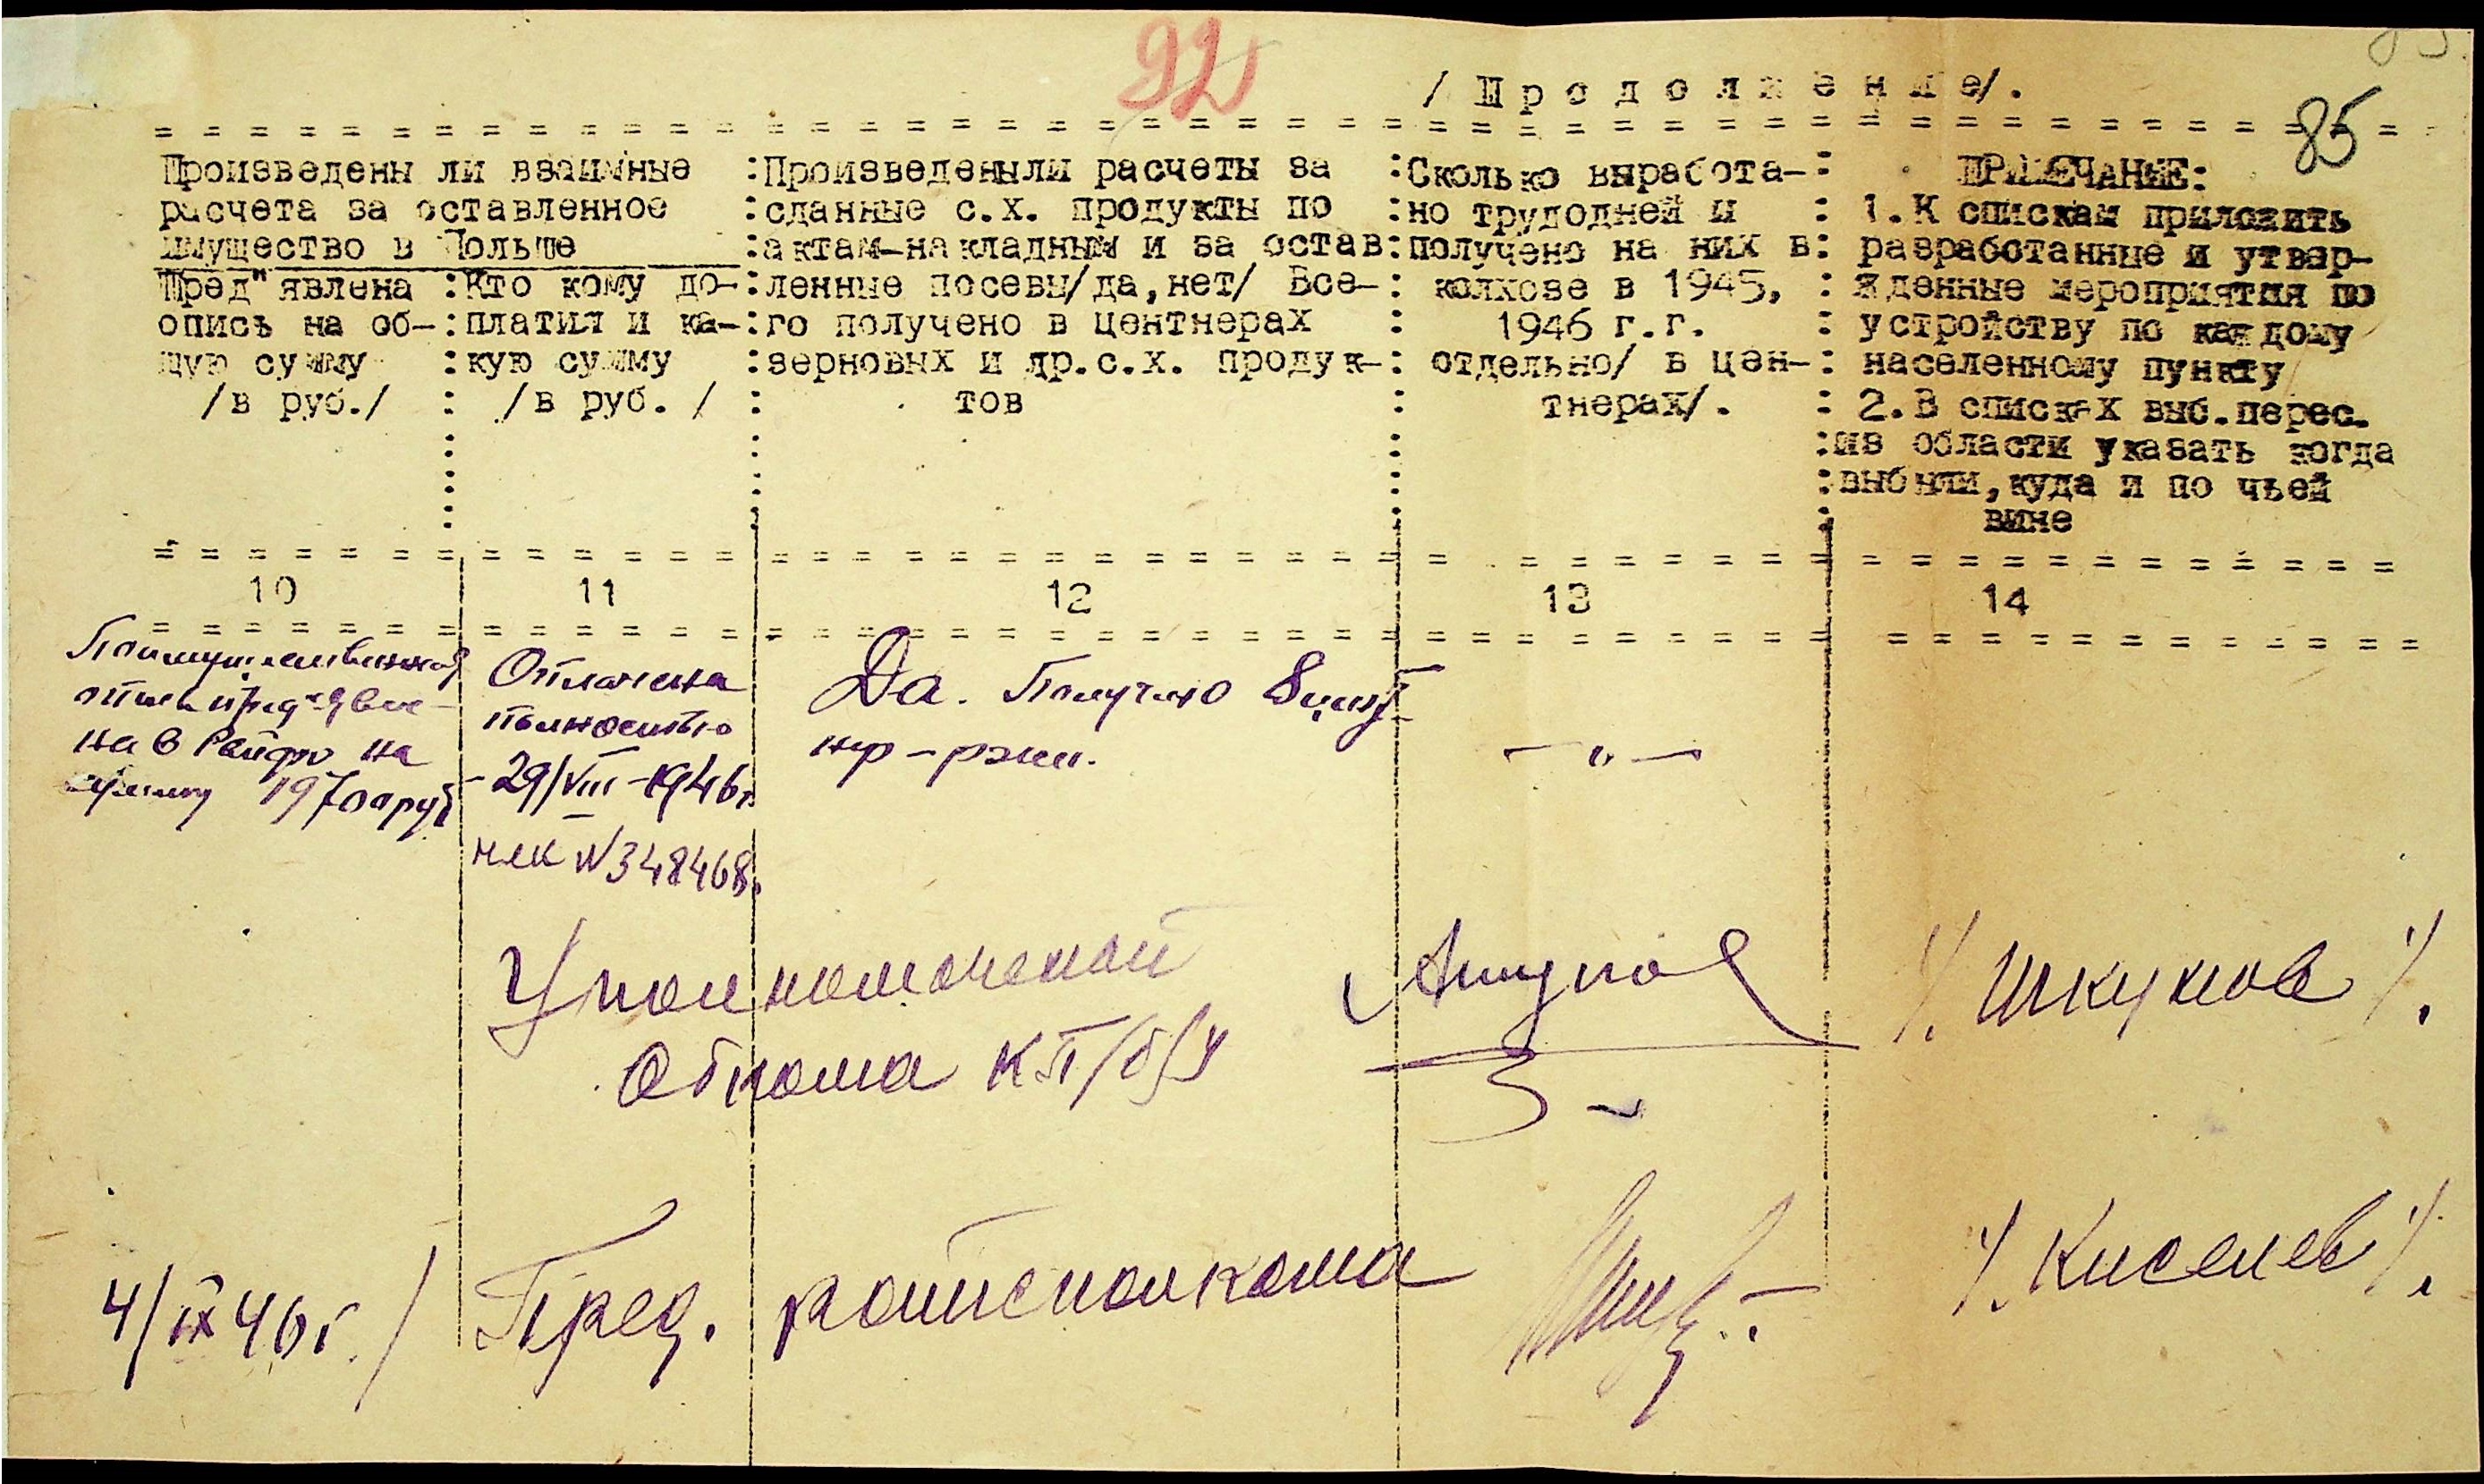 92
/ П р о д о л ж е н и е/.
85
Произведены ли взаимные
расчета за оставленное
имущество в Польше
Пред"явлена
опись на об-
щую сумму
/в руб./
Кто кому до-
платил и ка-
кую сумму
/в руб. /
Произведены ли расчеты за
сданные с.х. продукты по
актам-накладным и за остав
ленные посевы/да,нет/ Все-
го получено в центнерах
зерновых и др.с.х. продук-
тов
Сколько выработа-
но трудодней и
получено на них в
колхозе в 1945,
1946 г.г.
отдельно/ в цен-
тнерах/.
ПРИМЕЧАНИЕ:
1.К спискам приложить
разработанные и утвер-
жденные мероприятия по
устройству по каждому
населенному пункту
2.В списках выб.перес.
из области указать когда
выбыли,куда и по чьей
вине
10 11 12 13 14
Поимущественная
опись пред"явле-
на в Райфо на
сумму руб
Оплачена
полностью
-29/VIII-1946г.
чек N348468.
Да. Получено 8 цент
нр-ржи.
— " —
Уполномоченой
Обкома КП/б/У
/. Шкунов /.
4/IX 46г. / Пред. райисполкома
/. Киселев /.